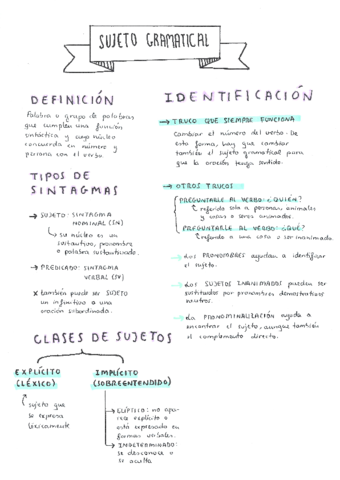 SUJETO GRAMATICAL
DEFINICIÓN
Palabra o grupo de palabras
que cumplen una función
sintáctica y cuyo núcleo
concuerda en número y
persona con el verbo.
TIPOS DE
SINTAGMAS
→ SUJETO: SINTAGMA
NOMINAL (SN)
↳ su núcleo es un
sustantivo, pronombre
o palabra sustantivada.
→ PREDICADO: SINTAGMA
VERBAL (SV)
x también puede ser SUJETO
un infinitivo o una
oración subordinada.
IDENTIFICACIÓN
→ TRUCO QUE SIEMPRE FUNCIONA
Cambiar el número del verbo. De
esta forma, hay que cambiar
también el sujeto gramatical para
que la oración tenga sentido.
→ OTROS TRUCOS
PREGUNTARLE AL VERBO: ¿QUIÉN?
↳ referido solo a personas, animales
y cosas o seres animados.
PREGUNTARLE AL VERBO: ¿QUÉ?
↳ referido a una cosa o ser inanimado
→ Los PRONOMBRES ayudan a identificar
el sujeto.
→ Los SUJETOS INANIMADOS pueden ser
sustituidos por pronombres demostrativos
neutros.
→ La PRONOMINALIZACIÓN ayuda a
encontrar el sujeto, aunque también
el complemento directo.
CLASES DE SUJETOS
EXPLÍCITO
(LÉXICO)
sujeto que
se expresa
léxicamente
IMPLÍCITO
(SOBREENTENDIDO)
→ ELÍPTICO: no apa-
rece explícito o
está expresado en
formas verbales.
→ INDETERMINADO:
se desconoce o
se oculta